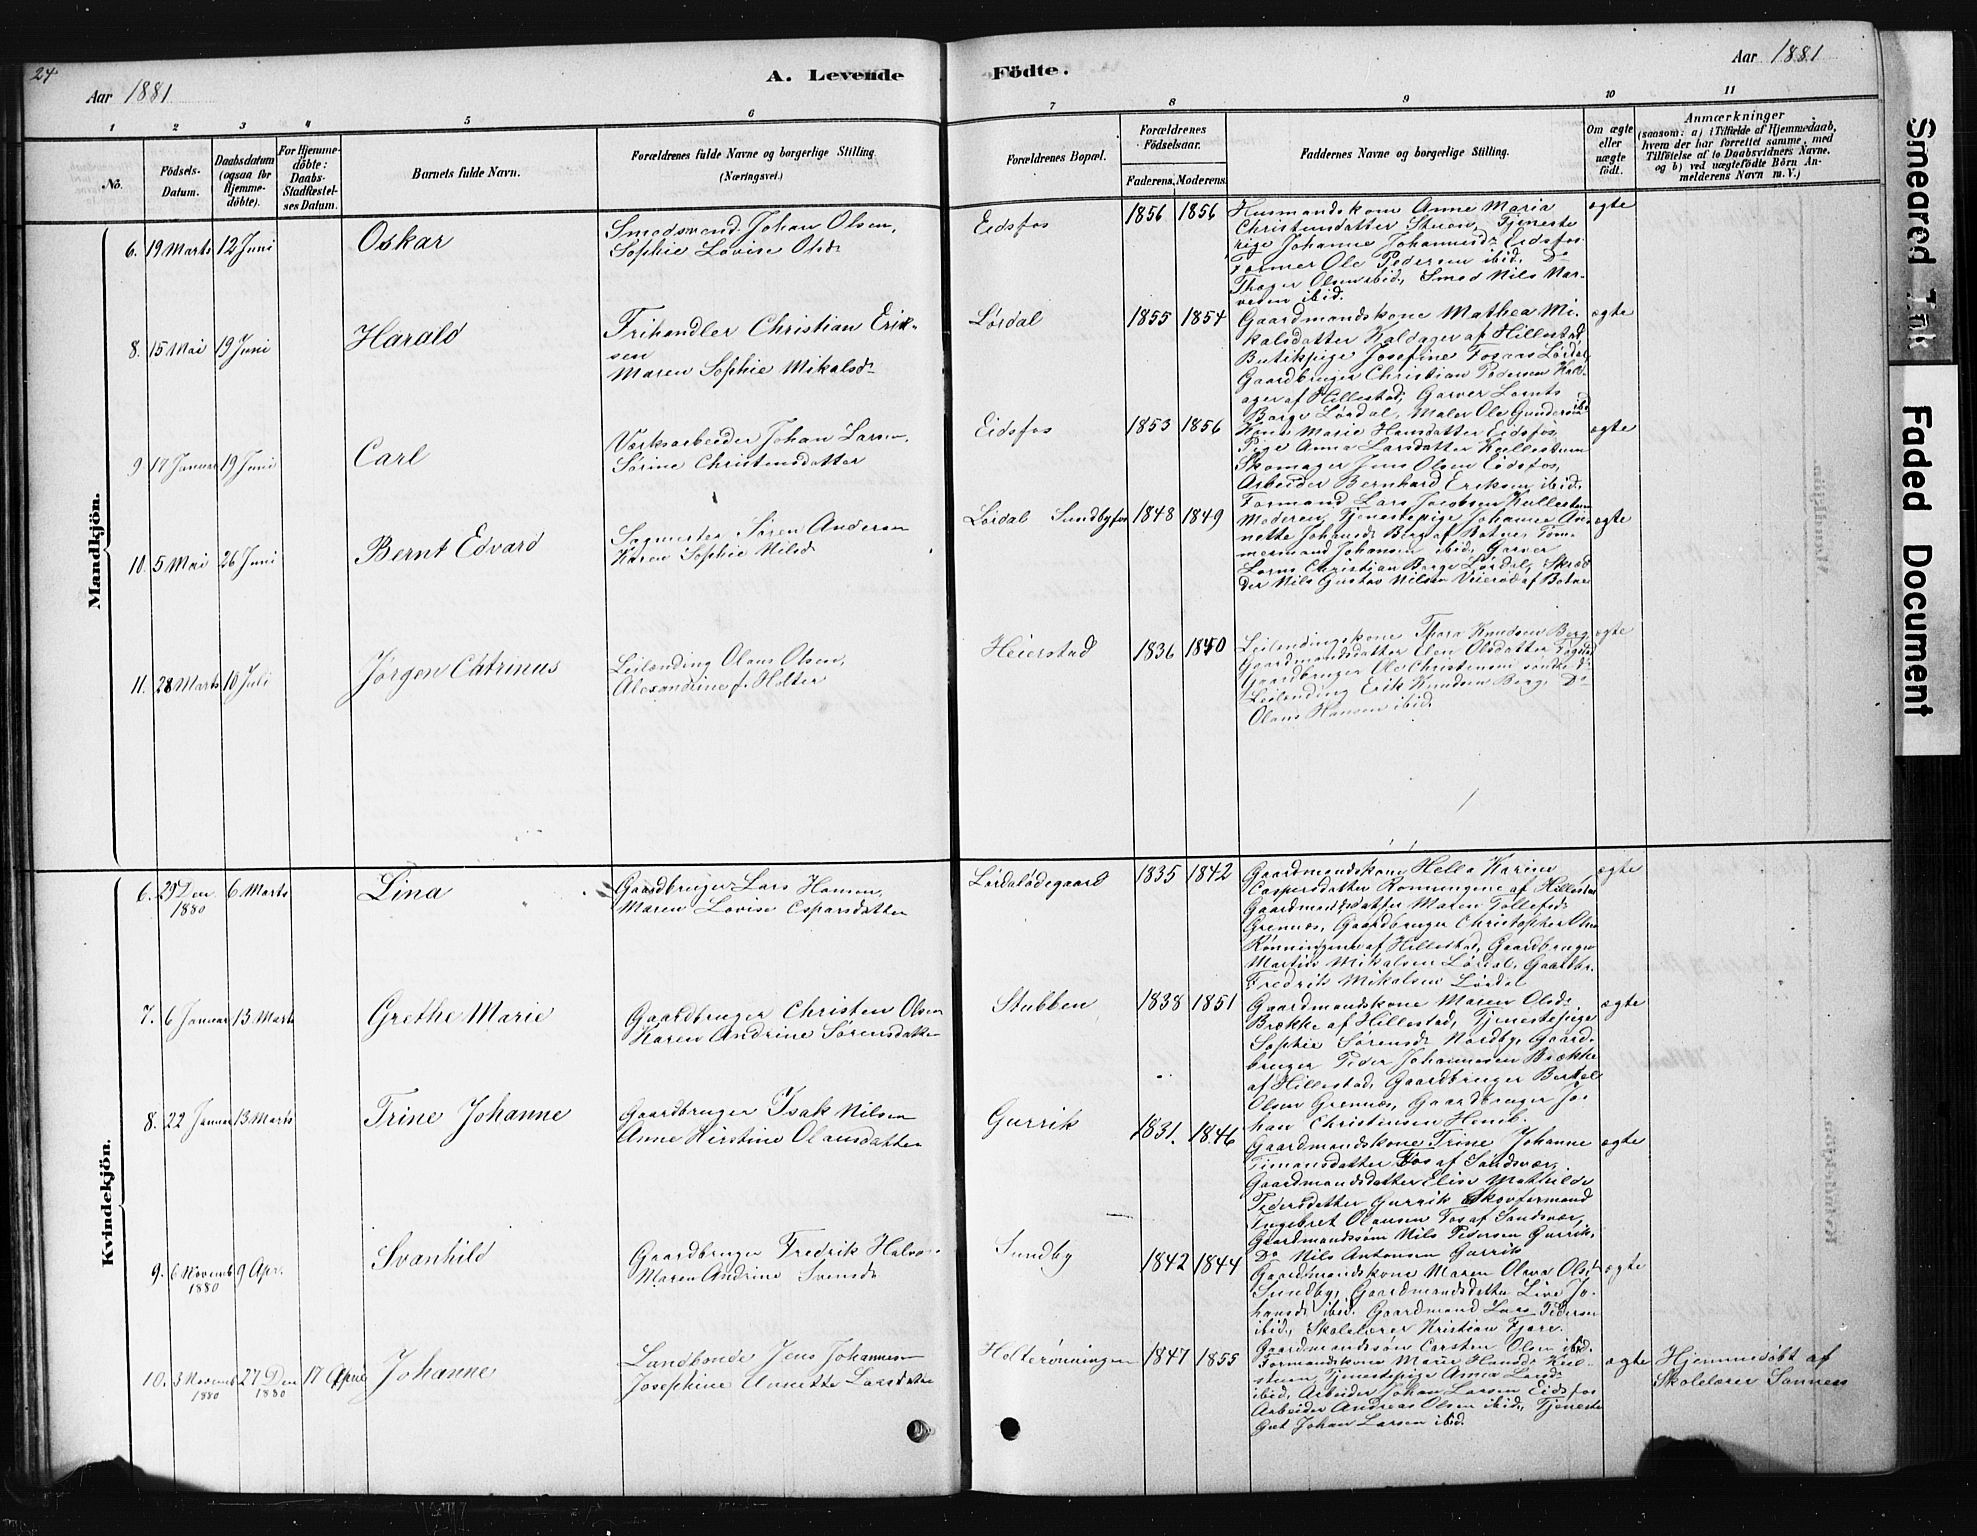 24
Aar 1881
A. Levende
Födte.
Aar 1881
1 2 3 4 5 6 7 8 9 10 11
No.
Födsels-
Datum.
Daabsdatum
(ogsaa for
Hjemme-
döbte).
For Hjemme-
döbte:
Daabs-
Stadfæstel-
ses Datum.
Barnets fulde Navn.
Forældrenes fulde Navne og borgerlige Stilling
(Næringsvei.)
Forældrenes Bopæl.
Forældrenes
Födselsaar.
Faderens. Moderens.
Faddernes Navne og borgerlige Stilling.
Om ægte
eller
uægte
födt.
Anmærkninger
(saasom: a) i Tilfælde af Hjemmedaab,
hvem der har forrettet samme, med
Tilföielse af to Daabsvidners Navne,
og b) ved uægtefödte Börn An-
melderens Navn m. V.)
Mandkjön.
6. 19 Marts 12 Juni Oskar
Smedsvend Johan Olsen,
Sophie Lovise Olsdr
Eidsfos 1856 1856
Husmandskone Anne Maria
Christensdatter Stuen, Tjeneste
pige Johanne Johannesdr Eidsfos
Former Ole Pedersen ibid, Do
Thager Olsen ibid, Smed Nils Nar-
vesen ibid.
ægte
8. 15 Mai 19 Juni Harald
Frihandler Christian Erik-
sen
Maren Sophie Mikalsdr
Lørdal 1855 1854
Gaardmandskone Mathea Mi-
kalsdatter Kaldager af Hillestad,
Butikpige Josefine Fosaas Lørdal,
Gaardbruger Christian Pedersen Kald-
ager af Hillestad, Garver Lornts
Berge Lørdal, Maler Ole Gundersen ibid
ægte
9 17 Januar 19 Juni Carl
Værksarbeider Johan Larsen,
Sørine Christensdatter
Eidsfos 1853 1856
Kone Marie Hansdatter Eidsfos,
Pige Anna Larsdatter Kullestuen
Skomager Jens Olsen Eidsfos,
Arbeider Bernhard Eriksen ibid,
Formand Lars Jacobsen Kullestuen
ægte
10. 5 Mai 26 Juni Bernt Edvard
Sagmester Søren Andersen
Karen Sophie Nilsdr
Lørdal Sundbyfos 1848 1849
Moderen, Tjenestepige Johanne An-
nette Johansdr Berg af Botne, Tøm-
mermand Johansen ibid, Garver
Lorns Christian Berge Lørdal, Skræd
der Nils Gustav Nilsen Vierød af Botne
ægte
11. 28 Marts 10 Juli Jørgen Catrinus
Leilænding Olaus Olsen,
Alexandrine f. Holter
Heierstad 1836 1840
Leilendingskone Thora Knudsen Berg
Gaardmandsdatter Elen Olsdatter
Gaardbruger Ole Christensen søndre Do
Leilending Erik Knudsen Berg, Do
Olaus Hansen ibid.
ægte
Kvindekjön.
6. 25 Den 1880 6 Marts Lina
Gaardbruger Lars Hansen,
Maren Lovise Caspersdatter
Lørdalødegaard 1835 1842
Gaardmandskone Hella Karine
Caspersdatter Rønningene af Hillestad
Gaardmandsdatter Maren Tollefsdr
Grennes, Gaardbruger Christopher Olsen
Rønningene af Hillestad, Gaardbruger
Martin Mikalsen Lørdal, Gaardbr.
Fredrik Mikalsen Lørdal
ægte
7. 6 Januar 13 Marts Grethe Marie
Gaardbruger Christen Olsen
Karen Andrine Sørensdatter
Stubben 1838 1851
Gaardmandskone Maren Olsdr
Brække af Hillestad, Tjenestepige
Sophie Sørensdr Nordby, Gaard-
bruger Peder Johannesen Brække
af Hillestad, Gaardbruger Bertel
Olsen Grennes, Gaardbruger Jo-
han Christensen Hensb.
ægte
8. 22 Januar 13 Marts Trine Johanne
Gaardbruger Isak Nilsen
Anne Kirstine Olausdatter
Gurrik 1831. 1846
Gaardmandskone Trine Johanne
Timansdatter Fos af Sandsvær,
Gaardmandsdatter Elise Mathilde
Pedersdatter Gurrik Skovformand
Ingebret Olausen Fos af Sandsvær,
Gaardmandssøn Nils Pedersen Gurrik,
Do Nils Antonsen Gurrik
ægte
9. 6 Novemb 1880 9 Apr. Svanhild
Gaardbruger Fredrik Halvo-
Maren Andrine Svensdr
Sundby 1842 1844
Gaardmandskone Maren Olava Olsdr
Sundby, Gaardmandsdatter Live Jo-
hansdr ibid. Gaardmand Lars Pedersen
ibid, Skolelærer Kristian Fjære.
Gaardmandssøn Carsten Olsen ibid.
ægte
10. 3 Novemb 1880 27 Den 1880 17 April Johanne
Landbonde Jens Johannesen
Josephine Annette Larsdatter
Holterønningen 1847 1855
Formandskone Marie Hansdr Kul-
stuen, Tjenestepige Anna Larsdr
ibid, Arbeider Johan Larsen Eidsfos
Arbeider Andreas Olsen ibid, Tjeneste
Gut Johan Larsen ibid.
ægte
Hjemmedøbt af
Skolelærer Sannes
Smeared Ink
Faded Document